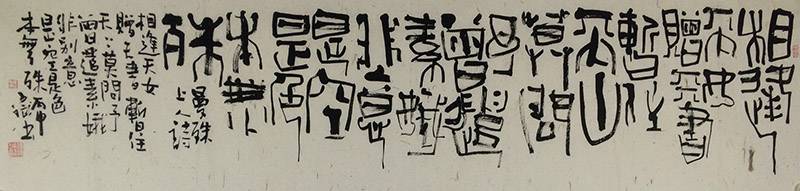 相逢
天女
贈天書
暫住
山
莫問
予
曾遣
素娥
非意
是空
是色
本無
曼殊
上人詩
相逢天女
贈天書暫住
天山莫問予
曾遣素娥
非別意
是空是色
本無殊丙申
書